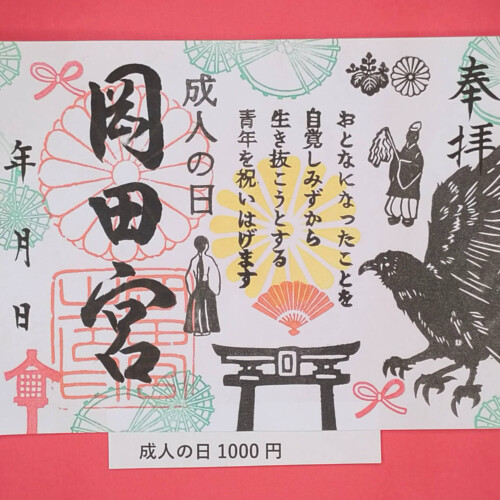 奉拝
おとなになったことを
自覚しみずから
生き抜こうとする
青年を祝いはげます
成人の日
岡田宮
年月日
成人の日1000円